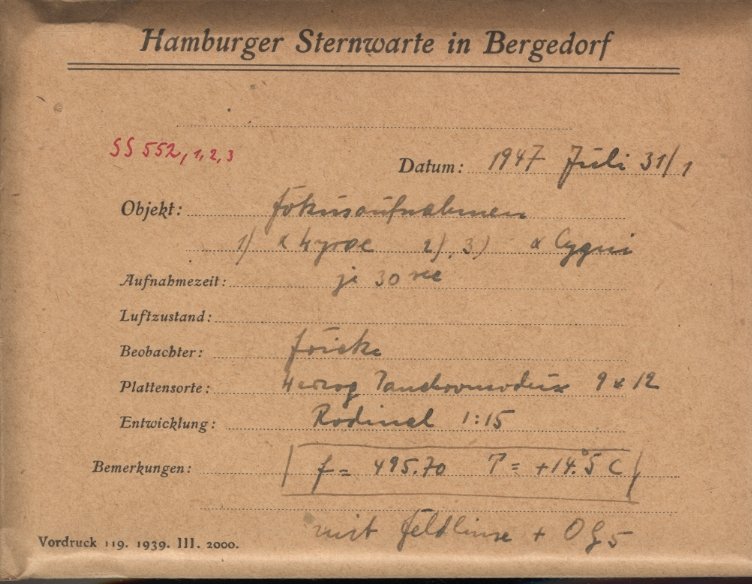 Hamburger Sternwarte in Bergedorf
SS 552, 1, 2, 3
Datum: 1947 Juli 31/1
Objekt: Fokusaufnahmen
1) α Lyrae 2), 3) α Cygni
Aufnahmezeit: je 30 sec
Luftzustand:
Beobachter:
Plattensorte: Herzog 9 x 12
Entwicklung: Rodinal 1:15
Bemerkungen: f = 495.70 T = +14.°5 C
mit Feldlinse + OG5
Vordruck 119. 1939. III. 2000.